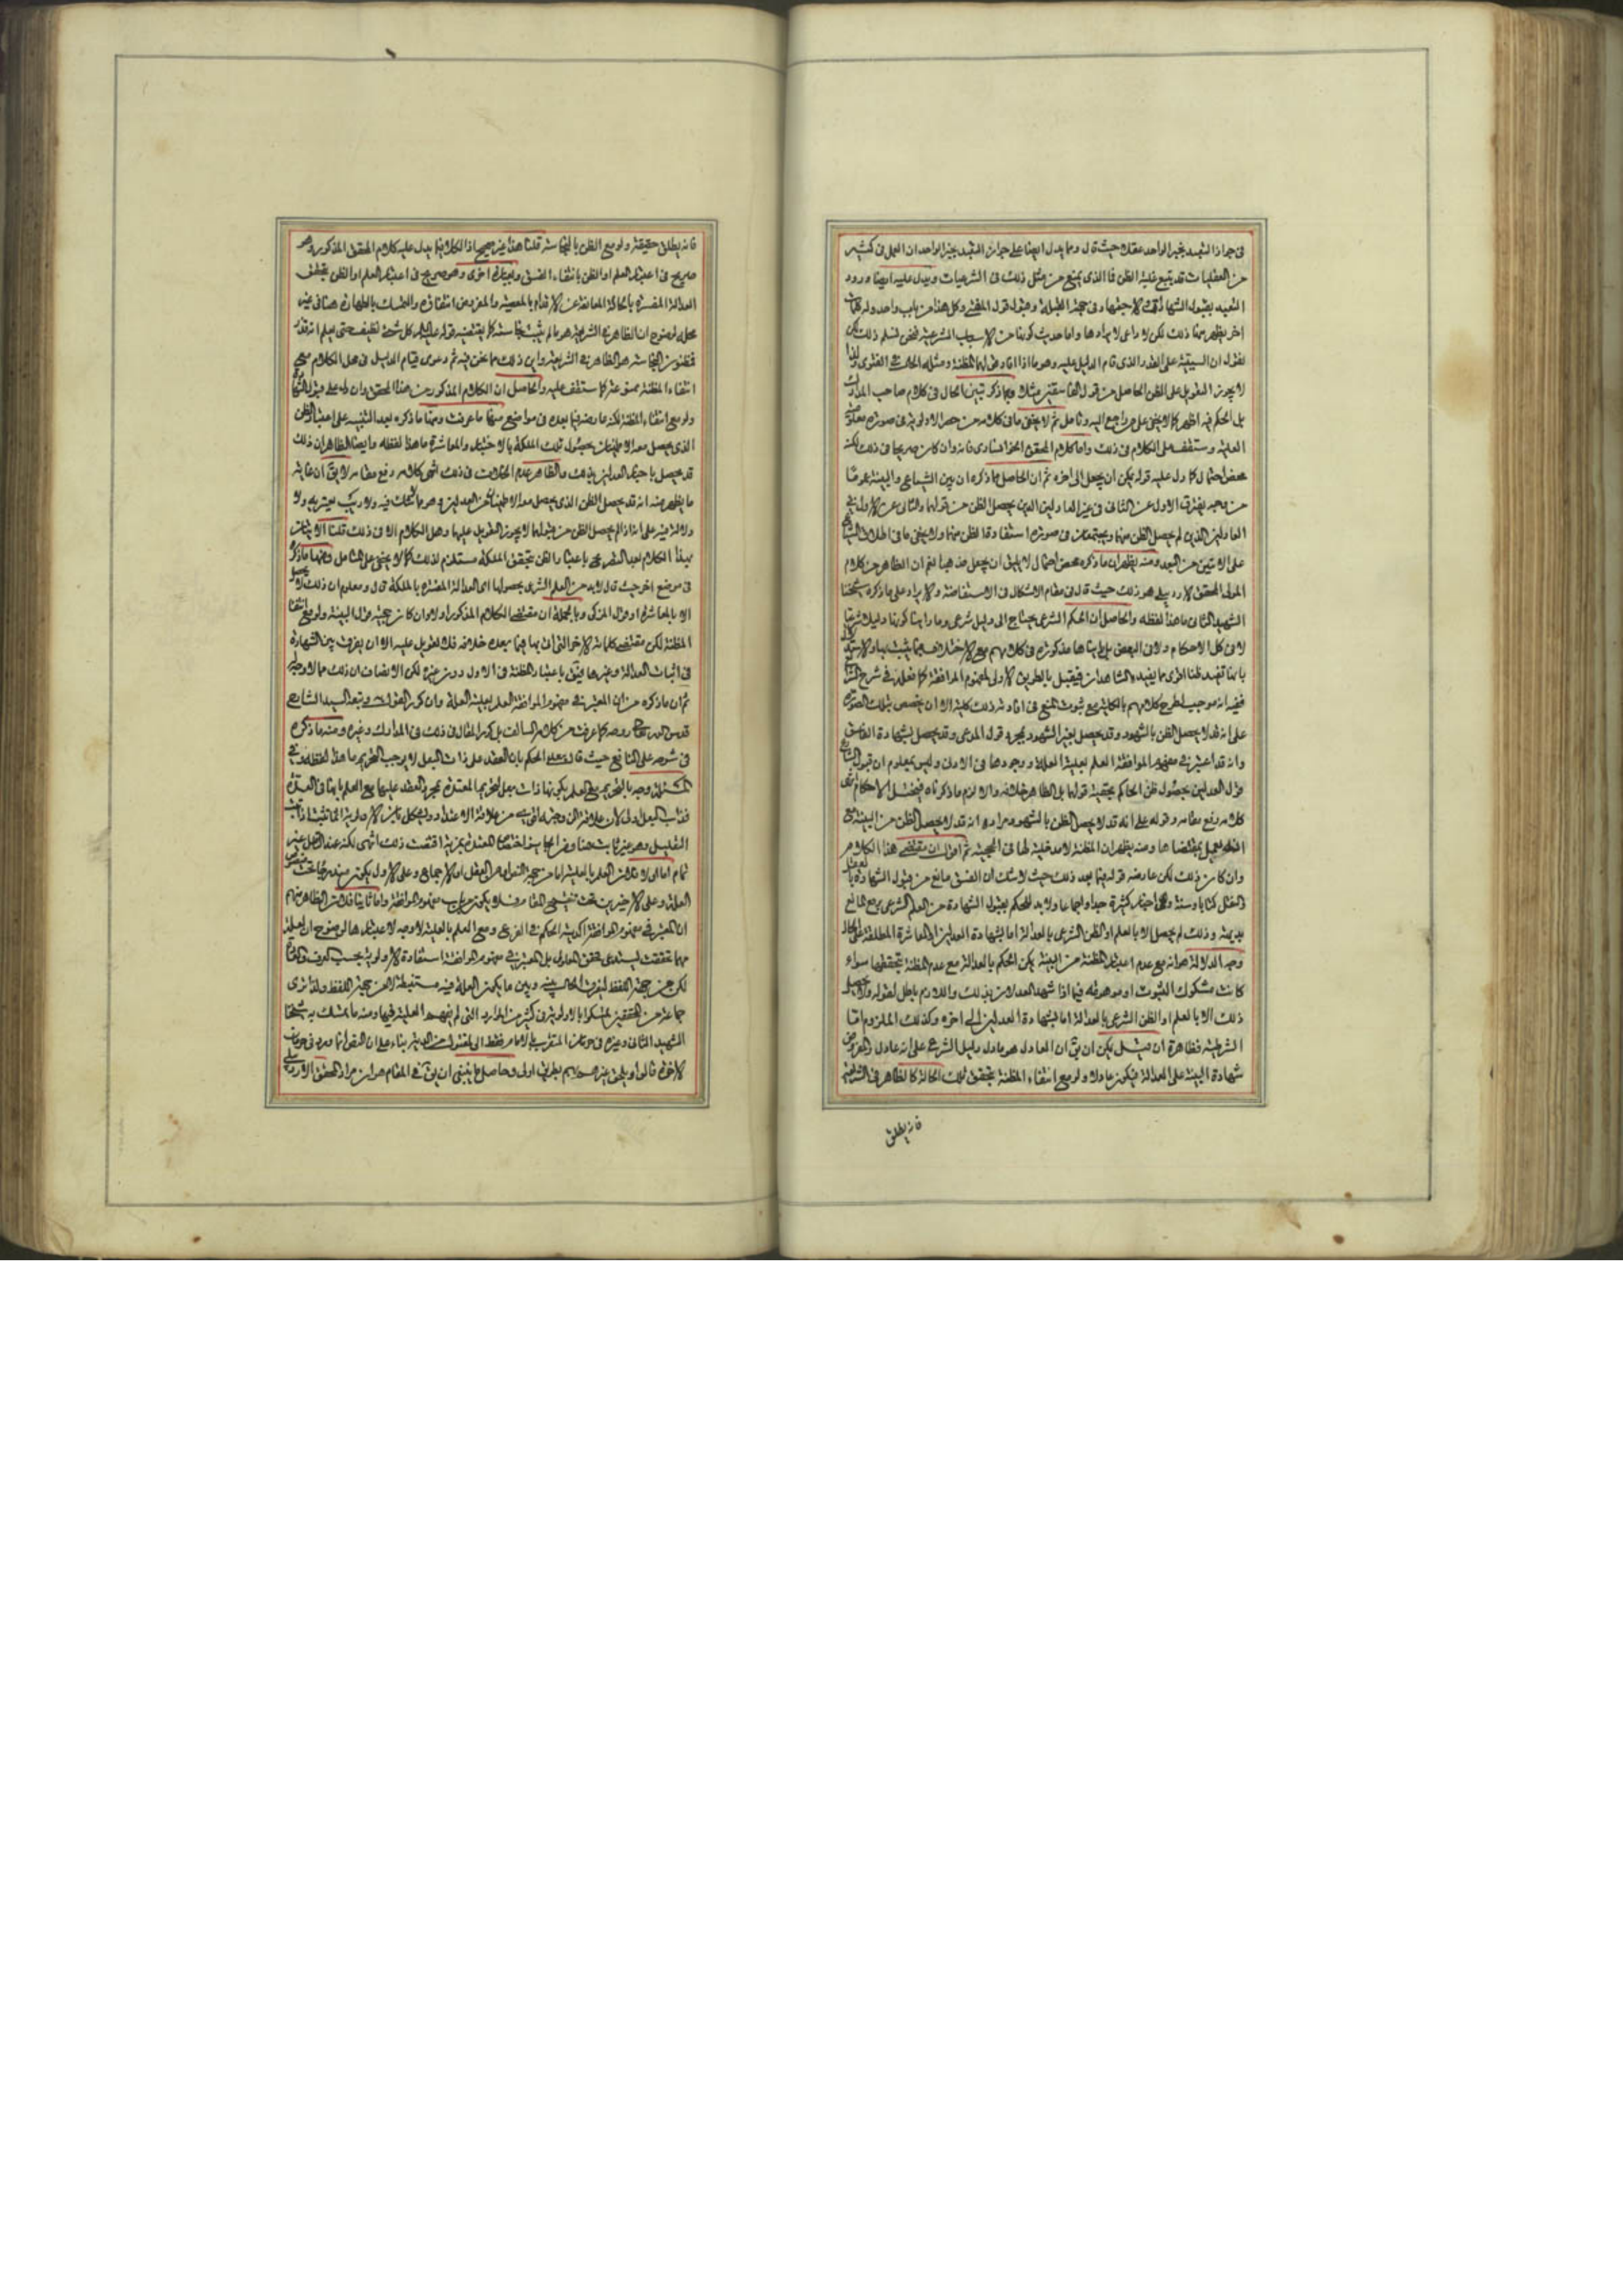 فى جواز التعبد بخبر الواحد عقلا حيث قال ومما يدل ايضا على جواز التعبد بخبر الواحد ان العمل فى كثير
من العقليات قد يتبع غلبة الظن فما الذى يمنع من مثل ذلك فى الشرعيات ويدل عليه ايضا ورود
التعبد بقبول الشهادات وفى جهة القبلة وقبول قول المفتى وكل هذا من باب واحد وله كلمات
اخر يظهر منها ذلك لكن لا داعى لايرادها واما حديث كونها من الاسباب الشرعية فنحن نسلم ذلك لكن
نقول ان السببية على القدر الذى قام الدليل عليه وهو ما اذا افاد قولهما المظنة ومثله الحال فى الفتوى ولذا
لا يجوز التعويل على الظن الحاصل من قول الفاسقين مثلا وبما ذكر تبين الحال فى كلام صاحب المدارك
بل الحكم فيه اظهر كما لا يخفى على من راجع اليه وتامل ثم لا يخفى ما فى كلامه من حصر الاولوية فى صورة معلومية
العلية وستقف على الكلام فى ذلك واما كلام المحقق الخوانسارى فانه وان كان صريحا فى ذلك لكنه
محض احتمال كما دل عليه قوله يمكن ان يجعل الى اخره ثم ان الحاصل مما ذكره ان بين الشياع والبينة عموما
من وجه يفترق الاول عن الثانى فى غير العادلين الذين يحصل الظن من قولهما والثانى عن الاول فى
العادلين الذين لم يحصل الظن منهما ويجتمعان فى صورة استفادة الظن منهما ولا يخفى ما فى اطلاق الشياع
على الاثنين من البعد ومنه يظهر ان ما ذكره محض احتمال لا يليق ان يجعل مذهبا نعم ان الظاهر من كلام
المولى المحقق الاردبيلى هو ذلك حيث قال فى مقام الاشكال فى الاستفاضة والايراد على ما ذكره شيخنا
الشهيد الثانى ما هذا لفظه والحاصل ان الحكم الشرعى يحتاج الى دليل شرعى وما راينا كونها دليلا شرعيا
لا فى كل الاحكام ولا فى البعض بل راينا مذكورة فى كلامهم مع الاختلاف فيما يثبت بها والاستدلال
بانها تفيد ظنا اقوى مما يفيده الشاهدان فيقبل بالطريق الاولى لمفهوم الموافقة كما فعله فى شرح الشرايع
ففيه انه موجب لطرح كلامهم بالكلية مع ثبوت المنع فى افادته ذلك كلية الا ان يخصص بتلك الصورة
على انه قد لا يحصل الظن بالشهود وقد يحصل بغير الشهود بمجرد قول المدعى وقد يحصل بشهادة الفاسق
وانه قد اعتبر فى مفهوم الموافقة العلم بعلية العلة ووجودها فى الاول وليس بمعلوم ان قبول الشارع
قول العدلين بحصول ظن الحاكم بحقية قولهما بل الظاهر خلافه والا لزم ما ذكرناه فيختل الاحكام انتهى
كلامه رفع مقامه وقوله على انه قد لا يحصل الظن بالشهود مراده انه قد لا يحصل الظن من البينة مع
العمل بمقتضاها ومنه يظهر ان المظنة لا مدخلية لها فى الحجية ثم اقول ان مقتضى هذا الكلام
وان كان ذلك لكن عارضه قوله فيما بعد ذلك حيث لا شك ان الفسق مانع من قبول الشهادة
كتابا وسنة وهى اخبار كثيرة جدا واجماعا ولا بد للحكم بقبول الشهادة من العلم الشرعى برفع المانع
بديهة وذلك لم يحصل الا بالعلم او الظن الشرعى بالعدالة اما بشهادة العدلين او المعاشرة المطلعة على الحال
وجه الدلالة هو انه مع عدم اعتبار المظنة من البينة يمكن الحكم بالعدالة مع عدم المظنة بتحققها سواء
كانت مشكوك الثبوت او موهومة فيما اذا شهد العدلان بذلك واللازم باطل لقوله ولا يحصل
ذلك الا بالعلم او الظن الشرعى بالعدالة اما بشهادة العدلين الى اخره وكذلك الملزوم اما
الشرطية فظاهرة ان قيل يمكن ان يق ان العادل هو ما دل دليل الشرع على انه عادل والمفروض
شهادة البينة على العدالة فيكون عادلا ولو مع انتفاء المظنة بتحقق تلك الحالة كالظاهر فى الشريعة
فانه يطلق
فانه يطلق حقيقة ولو مع الظن بالنجاسة قلنا هذا غير صحيح اذ الكلام فيما يدل عليه كلام المحقق المذكور وهو
صريح فى اعتبار العلم او الظن بانتفاء الفسق وبعبارة اخرى وهو صريح فى اعتبار العلم او الظن بتحقق
العدالة المفسرة بالحالة المانعة عن الاقدام بالمعصية والمفروض انتفاؤه والتمسك بالطهارة هنا فى غير
محله لوضوح ان الطاهر فى الشريعة هو ما لم يثبت نجاسته كما يقتضيه قوله عليه السلام كل شئ نظيف حتى يعلم انه قذر
فمظنون النجاسة هو الطاهر فى الشريعة واين ذلك مما نحن فيه ثم دعوى قيام الدليل فى محل الكلام مع
انتفاء المظنة ممنوعة كما ستقف عليه والحاصل ان الكلام المذكور من هذا المحقق وان دل على قبول الشهادة
ولو مع انتفاء المظنة لكنه عارضه فيما بعده فى مواضع منها ما عرفت ومنها ما ذكره بعد التنبيه على اعتبار الظن
الذى يحصل معه الاطمينان بحصول تلك الملكة بالاختبار والمعاشرة ما هذا لفظه وايضا الظاهر ان ذلك
قد يحصل باخبار العدلين بذلك والظاهر عدم الخلاف فى ذلك انتهى كلامه رفع مقامه لا يق ان غاية
ما يظهر منه انه قد يحصل الظن الذى يحصل معه الاطمينان من العدلين وهو مما لا شك فيه ولا ريب يعتريه ولا
دلالة فيه على انه اذا لم يحصل الظن من قولهما لا يجوز التعويل عليهما وهل الكلام الا فى ذلك قلنا الاتيان
بهذا الكلام بعد التصريح باعتبار الظن بتحقق الملكة مستلزم لذلك كما لا يخفى على المتامل ومنها ما ذكره
فى موضع اخر حيث قال لا بد من العلم الشرعى بحصولها اى العدالة المفسرة بالملكة قال ومعلوم ان ذلك لا يحصل
الا بالمعاشرة او قول المزكى وبالجملة ان مقتضى الكلام المذكور اولا وان كان حجية قول البينة ولو مع انتفاء
المظنة لكن مقتضى كلماته الاخر التى اتى بها فيما بعده خلافه فلا تعويل عليه الا ان يفرق بين الشهادة
فى اثبات العدالة وغيرها فيق باعتبار المظنة فى الاول دون غيره لكن الانصاف ان ذلك مما لا وجه له
ثم ان ما ذكره من ان المعتبر فى مفهوم الموافقة العلم بعلية العلة وان كرر القول به وتبعه السيد الشارح
قدس الله روحه كما عرفت من كلامه السالف بل كرر المقال فى ذلك فى المدارك وغيره ومنه ما ذكره
فى شرحه على النافع حيث قال بعد الحكم بان العقد على ذات البعل لا يوجب التحريم ما هذا لفظه وفى
المسئلة وجه بالتحريم مع العلم بكونها ذات بعل لتحريم المعتدة بمجرد العقد عليها مع العلم بانها فى العدة
فذات البعل اولى لان علاقة الزوجية اقوى من علاقة الاعتداد ويشكل بان الاولوية انما تثبت اذا ثبت
التعليل وهو غير ثابت هنا ومن الجايز اختصاص المعتدة بمزية اقتضت ذلك انتهى لكنه عند التامل غير
تمام اما اولا فلان العلم بالعلية اما من جهة النص او من العقل او الاجماع وعلى الاول يكون مندرجا تحت منصوص
العلة وعلى الاخيرين تحت تنقيح المناط فلا يكون من باب مفهوم الموافقة واما ثانيا فلان الظاهر منهم
ان المعتبر فى مفهوم الموافقة اكدية الحكم فى الفرع ومع العلم بالعلية لا وجه لاعتبارها لوضوح ان العلة
مهما تحققت يستدعى تحقق المعلول بل المعتبر فى مفهوم الموافقة استفادة الاولوية بحسب العرف والعادة
لكن من جهة اللفظ ليفرق الحال بينه وبين ما يكون العلة فيه مستنبطة لا من جهة اللفظ ولذا نرى
جماعة من المحققين تمسكوا بالاولوية فى كثير من الموارد التى لم يفهم العلية فيها ومنه ما تمسك به شيخنا
الشهيد الثانى وغيره فى جواز بناء على ان النص انما ورد فى جواز
الاخرى قالوا ويلحق غيره بطريق اولى وحاصل ما ينبغى ان يق فى المقام هو ان مراد المحقق الاردبيلى